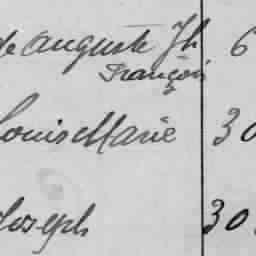 de Auguste Jh 6
François
Louis Marie 30
Joseph 30